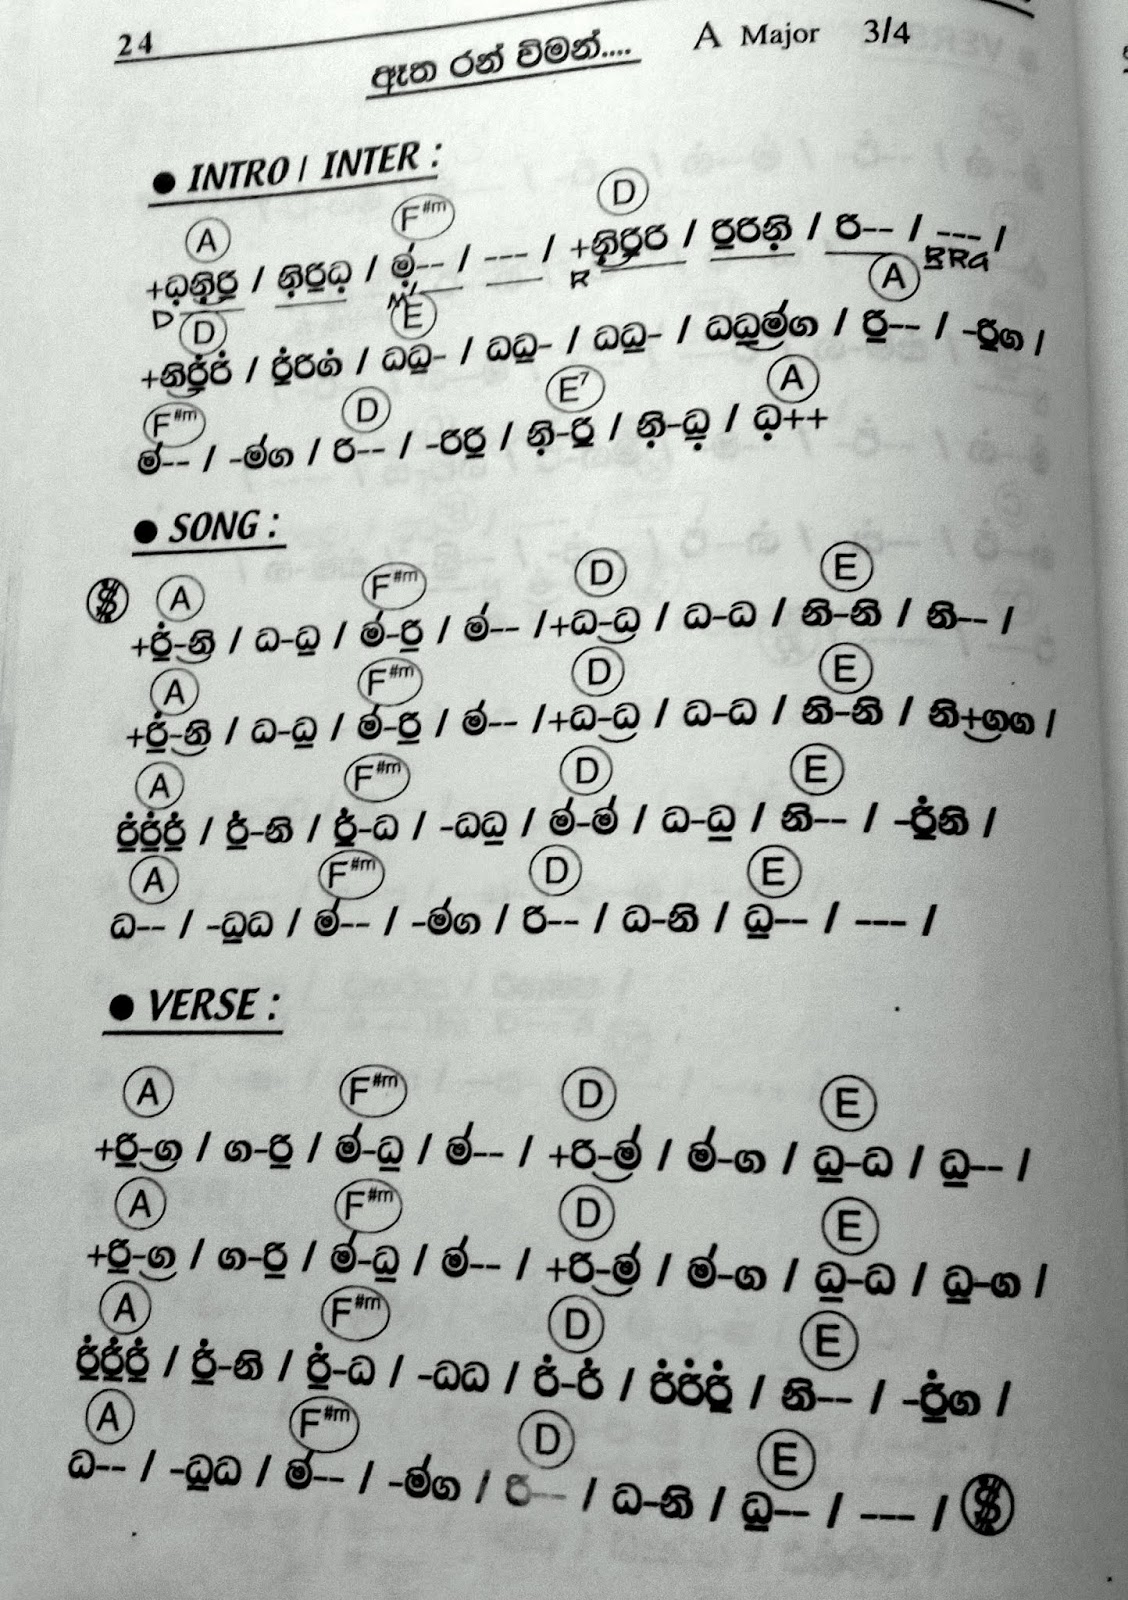 24
ඈත රන් විමන්.... A Major 3/4
● INTRO / INTER :
A F#m D
+ධ़නි़රි̱ / නි़රි̱ධ़ / ම़්-- / --- / +නි़රි̱රි / රි̱රිනි़ / රි-- / --- /
D M' R RRG
D E A
+නිරි̱̇රි̇ / රි̱̇රිග̇ / ධධ̱- / ධධ̱- / ධධ̱- / ධධ̱ම්ග / රි̱-- / -රි̱ග /
F#m D E7 A
ම්-- / -ම්ග / රි-- / -රිරි̱ / නි़-රි̱ / නි़-ධ़̱ / ධ़++
● SONG :
A F#m D E
+රි̱̇-නි / ධ-ධ̱ / ම්-රි̱ / ම්-- /+ධ-ධ / ධ-ධ / නි-නි / නි-- /
A F#m D E
+රි̱̇-නි / ධ-ධ̱ / ම්-රි̱ / ම්-- /+ධ-ධ / ධ-ධ / නි-නි / නි+ගග /
A F#m D E
රි̱̇රි̱̇රි̱̇ / රි̱̇-නි / රි̱̇-ධ / -ධධ̱ / ම්-ම් / ධ-ධ̱ / නි-- / -රි̱̇නි /
A F#m D E
ධ-- / -ධ̱ධ / ම්-- / -ම්ග / රි-- / ධ-නි / ධ̱-- / --- /
● VERSE :
A F#m D E
+රි̱-ග / ග-රි̱ / ම්-ධ̱ / ම්-- / +රි-ම් / ම්-ග / ධ̱-ධ / ධ̱-- /
A F#m D E
+රි̱-ග / ග-රි̱ / ම්-ධ̱ / ම්-- / +රි-ම් / ම්-ග / ධ̱-ධ / ධ̱-ග /
A F#m D E
රි̱̇රි̱̇රි̱̇ / රි̱̇-නි / රි̱̇-ධ / -ධධ / රි̇-රි̇ / රි̇රි̇රි̱̇ / නි-- / -රි̱̇ග /
A F#m D E
ධ-- / -ධ̱ධ / ම්-- / -ම්ග / රි-- / ධ-නි / ධ̱-- / --- /